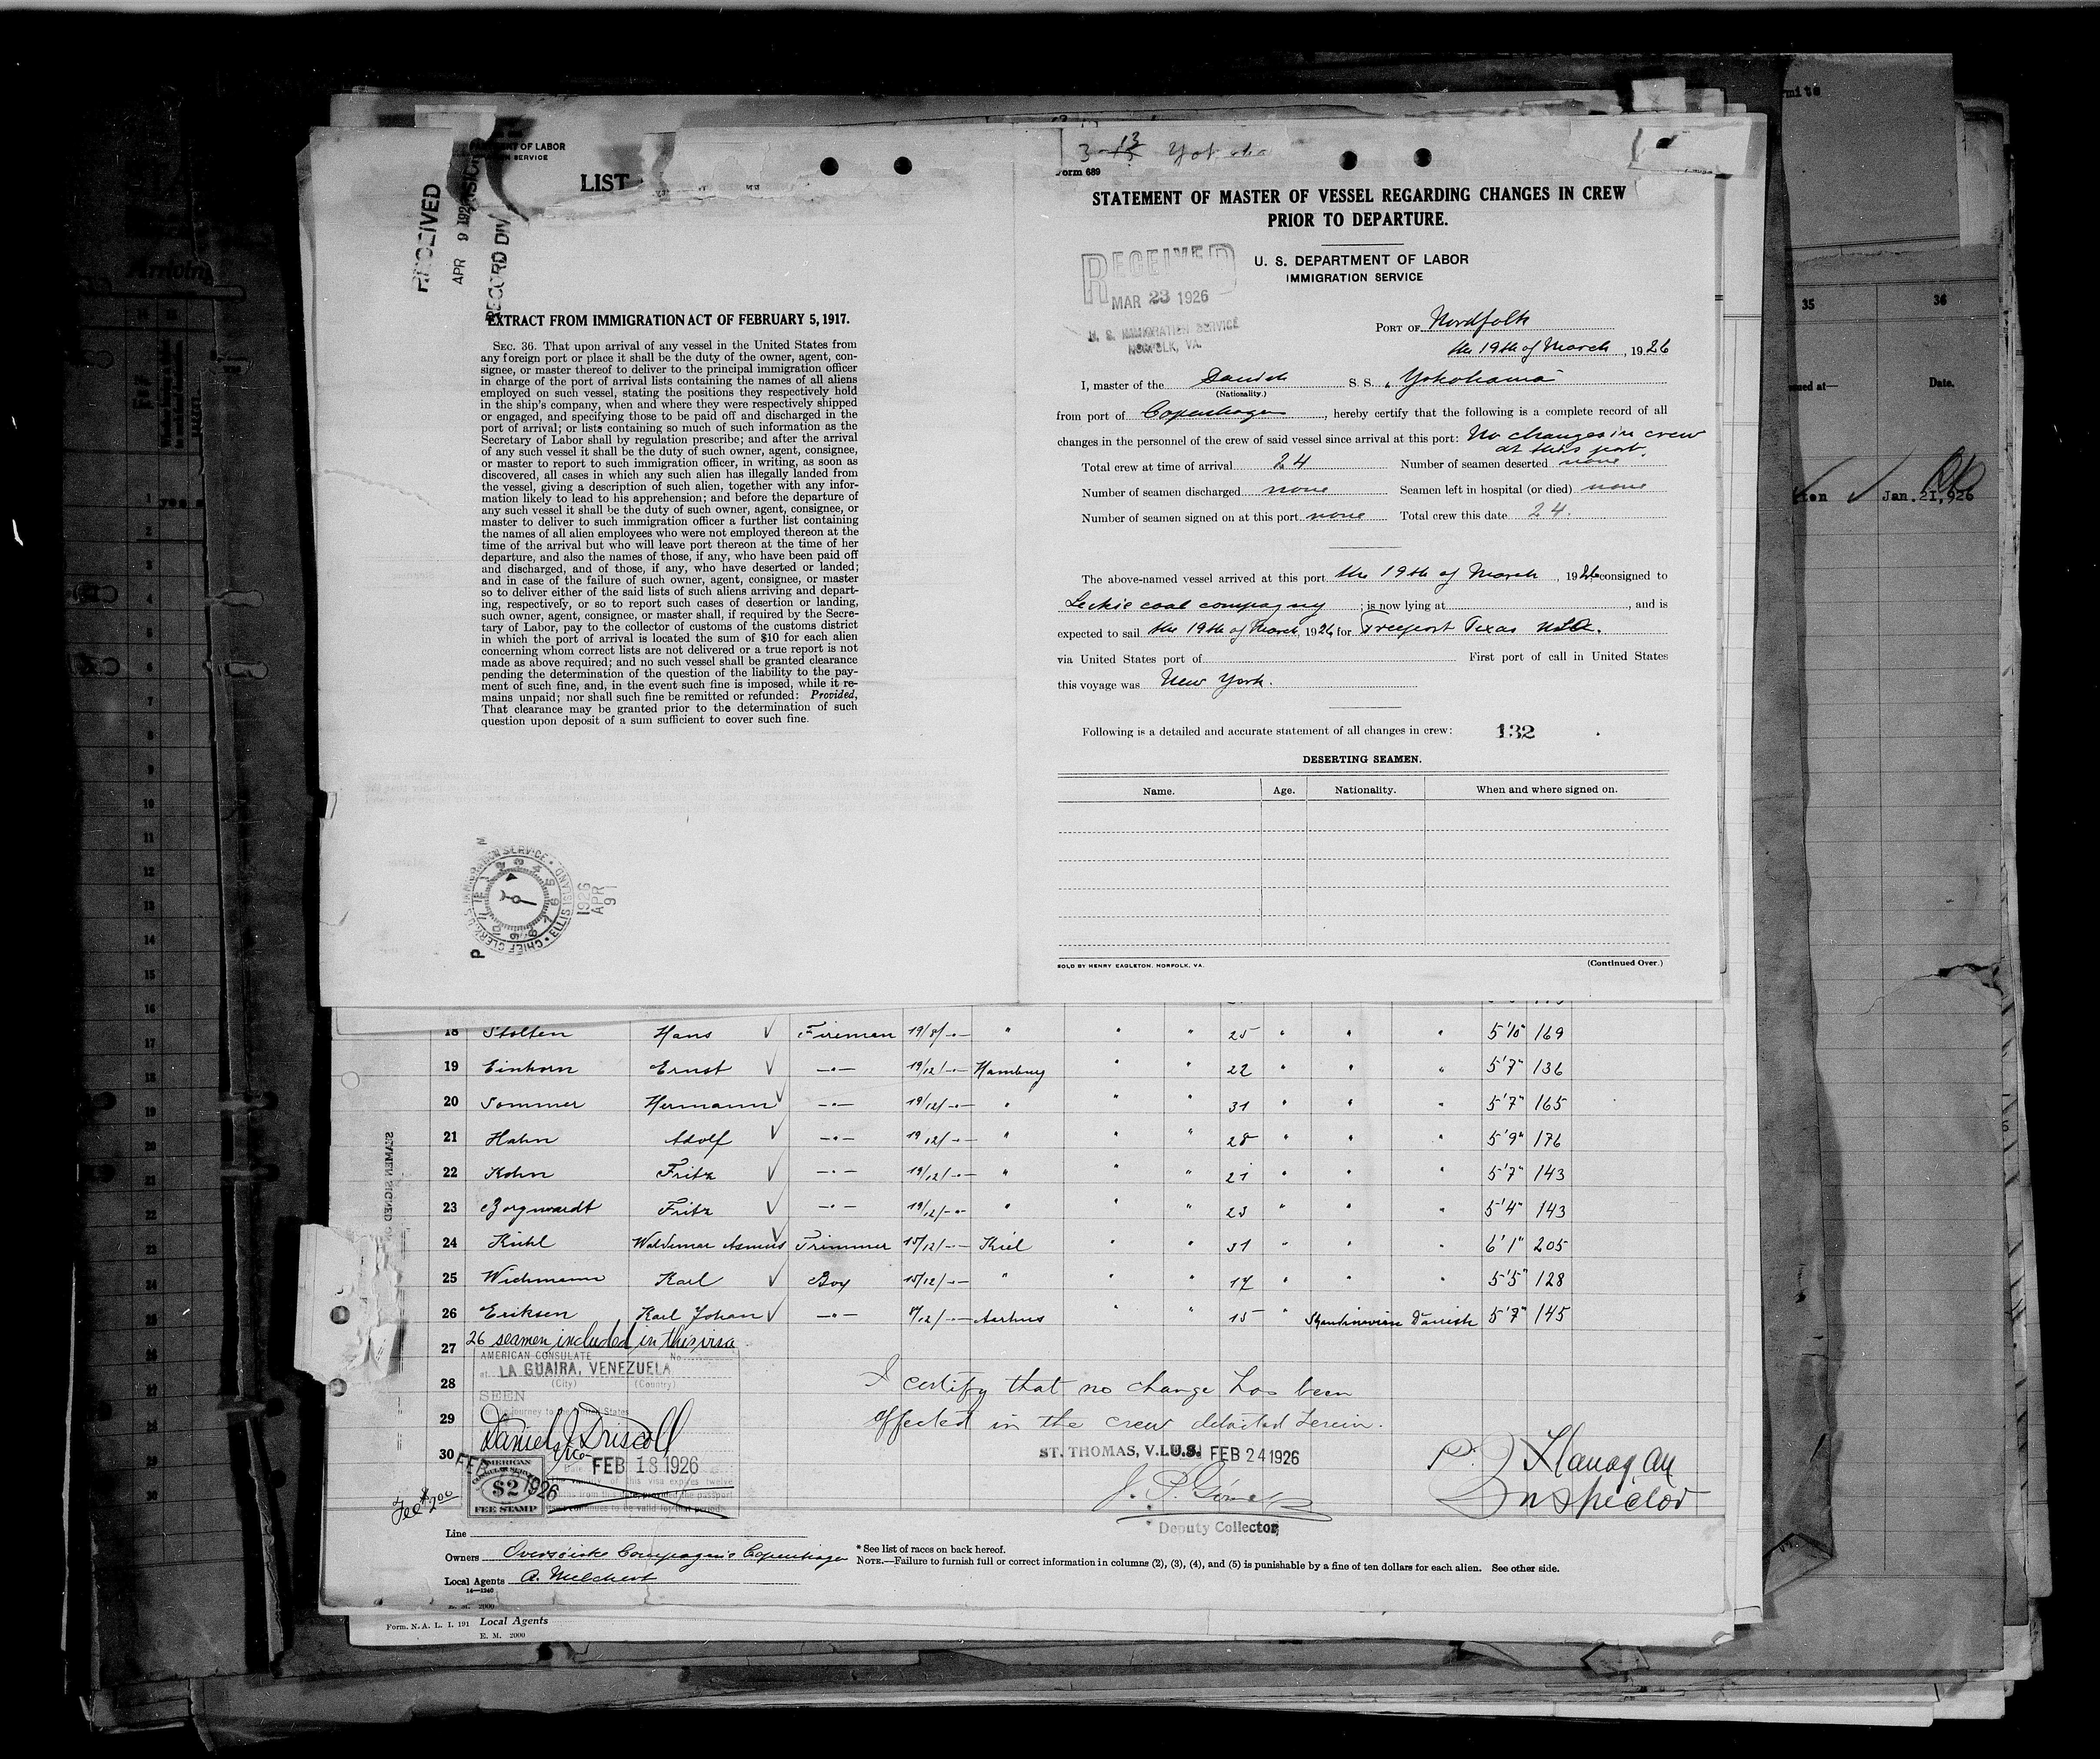 DEPARTMENT OF LABOR
LIST
RECEIVED
APR 9 1926
RECORD DIV
EXTRACT FROM IMMIGRATION ACT OF FEBRUARY 5, 1917.
SEC. 36. That upon arrival of any vessel in the United States from
any foreign port or place it shall be the duty of the owner, agent, con-
signee, or master thereof to deliver to the principal immigration officer
in charge of the port of arrival lists containing the names of all aliens
employed on such vessel, stating the positions they respectively hold
in the ship's company, when and where they were respectively shipped
or engaged, and specifying those to be paid off and discharged in the
port of arrival; or lists containing so much of such information as the
Secretary of Labor shall by regulation prescribe; and after the arrival
of any such vessel it shall be the duty of such owner, agent, consignee,
or master to report to such immigration officer, in writing, as soon as
discovered, all cases in which any such alien has illegally landed from
the vessel, giving a description of such alien, together with any infor-
mation likely to lead to his apprehension; and before the departure of
any such vessel it shall be the duty of such owner, agent, consignee, or
master to deliver to such immigration officer a further list containing
the names of all alien employees who were not employed thereon at the
time of the arrival but who will leave port thereon at the time of her
departure, and also the names of those, if any, who have been paid off
and discharged, and of those, if any, who have deserted or landed;
and in case of the failure of such owner, agent, consignee, or master
so to deliver either of the said lists of such aliens arriving and depart-
ing, respectively, or so to report such cases of desertion or landing,
such owner, agent, consignee, or master shall, if required by the Secre-
tary of Labor, pay to the collector of customs of the customs district
in which the port of arrival is located the sum of $10 for each alien
concerning whom correct lists are not delivered or a true report is not
made as above required; and no such vessel shall be granted clearance
pending the determination of the question of the liability to the pay-
ment of such fine, and, in the event such fine is imposed, while it re-
mains unpaid; nor shall such fine be remitted or refunded: Provided,
That clearance may be granted prior to the determination of such
question upon deposit of a sum sufficient to cover such fine.
CHIEF CLERK, U.S. IMMIGRATION SERVICE · ELLIS ISLAND
1926 APR 9
Form 689
STATEMENT OF MASTER OF VESSEL REGARDING CHANGES IN CREW
PRIOR TO DEPARTURE.
U. S. DEPARTMENT OF LABOR
IMMIGRATION SERVICE
RECEIVED
MAR 23 1926
U. S. IMMIGRATION SERVICE
NORFOLK, VA.
PORT OF Nordfolk
the 19th of March, 1926
I, master of the Danish S. S. „ Yokohama"
(Nationality.)
from port of Copenhagen, hereby certify that the following is a complete record of all
changes in the personnel of the crew of said vessel since arrival at this port: No changes in crew
at this port.
Total crew at time of arrival 24 Number of seamen deserted none
Number of seamen discharged none Seamen left in hospital (or died) none
Number of seamen signed on at this port none Total crew this date 24.
The above-named vessel arrived at this port the 19th of March, 1926 consigned to
Leckie coal compagny; is now lying at , and is
expected to sail the 19th of March, 1926 for Freeport Texas USA.
via United States port of First port of call in United States
this voyage was New York.
Following is a detailed and accurate statement of all changes in crew: 132
DESERTING SEAMEN.
Name. Age. Nationality. When and where signed on.
SOLD BY HENRY EAGLETON, NORFOLK, VA. (Continued Over.)
18 Stolten Hans ✓ Fireman 19/8/-"- " " " 25 " " " 5'10" 169
19 Einhorn Ernst ✓ -"- 19/12/-"- Hamburg " " 22 " " " 5'7" 136
20 Sommer Hermann ✓ -"- 19/12/-"- " " " 31 " " " 5'7" 165
21 Hahn Adolf ✓ -"- 19/12/-"- " " " 28 " " " 5'9" 176
22 Kohn Fritz ✓ -"- 19/12/-"- " " " 21 " " " 5'7" 143
23 Borgwardt Fritz ✓ -"- 19/12/-"- " " " 23 " " " 5'4" 143
24 Kühl Waldemar Asmus ✓ Trimmer 15/12/-"- Kiel " " 31 " " " 6'1" 205
25 Wichmann Karl ✓ Boy 15/12/-"- " " " 17 " " " 5'5" 128
26 Eriksen Karl Johan ✓ -"- 8/12/-"- Aarhus " " 15 " Skandinavian Danish 5'7" 145
27 26 seamen included in this visa
AMERICAN CONSULATE No.
at LA GUAIRA, VENEZUELA
(City) (Country)
28
SEEN
For the journey to the United States
29
Daniel J. Driscoll
30
Date FEB 18 1926
AMERICAN CONSULAR SERVICE
$2
FEE STAMP
The validity of this visa expires twelve
months from this date, provided the passport
continues to be valid for that period.
Fee $2.00
I certify that no change has been
effected in the crew detailed herein.
ST. THOMAS, V.I.U.S. FEB 24 1926
Deputy Collector
P. J. Flanagan
Inspector
Line
Owners Oversøiske Compagnie Copenhagen
Local Agents A. Melchert
14—1240
* See list of races on back hereof.
NOTE.—Failure to furnish full or correct information in columns (2), (3), (4), and (5) is punishable by a fine of ten dollars for each alien. See other side.
Form. N. A. L. I. 191 Local Agents
E. M. 2000
35 36
Date.
Jan. 21, 926